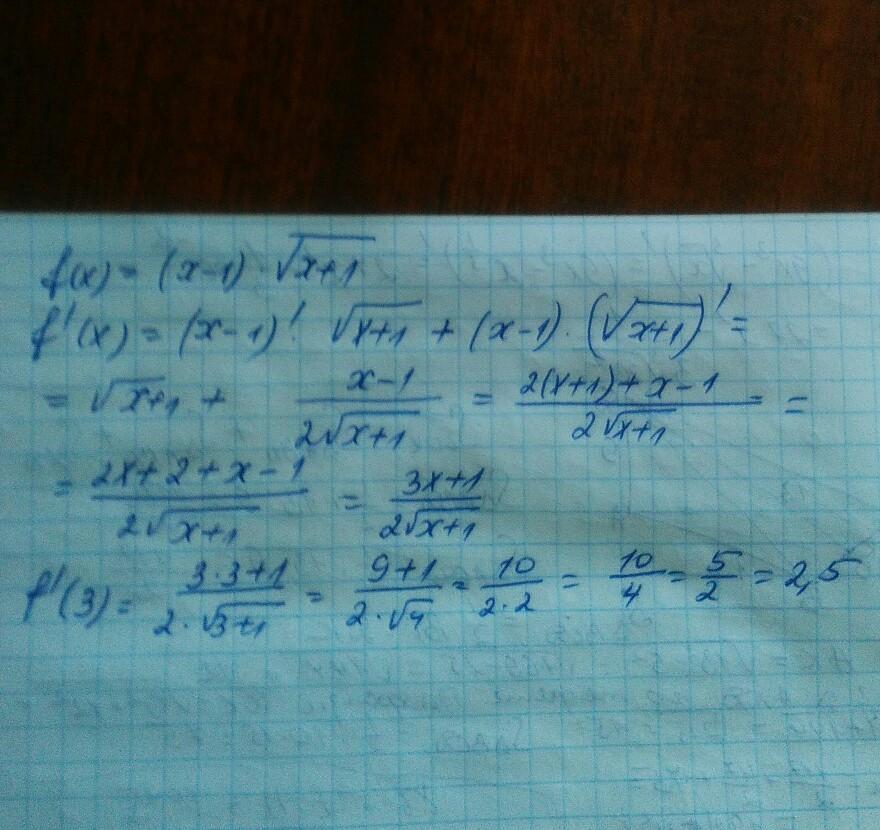 f(x) = (x-1) · √(x+1)
f'(x) = (x-1)' · √(x+1) + (x-1) · (√(x+1))' =
= √(x+1) + (x-1)/(2√(x+1)) = (2(x+1)+x-1)/(2√(x+1)) =
= (2x+2+x-1)/(2√(x+1)) = (3x+1)/(2√(x+1))
f'(3) = (3·3+1)/(2·√(3+1)) = (9+1)/(2·√4) = 10/(2·2) = 10/4 = 5/2 = 2,5